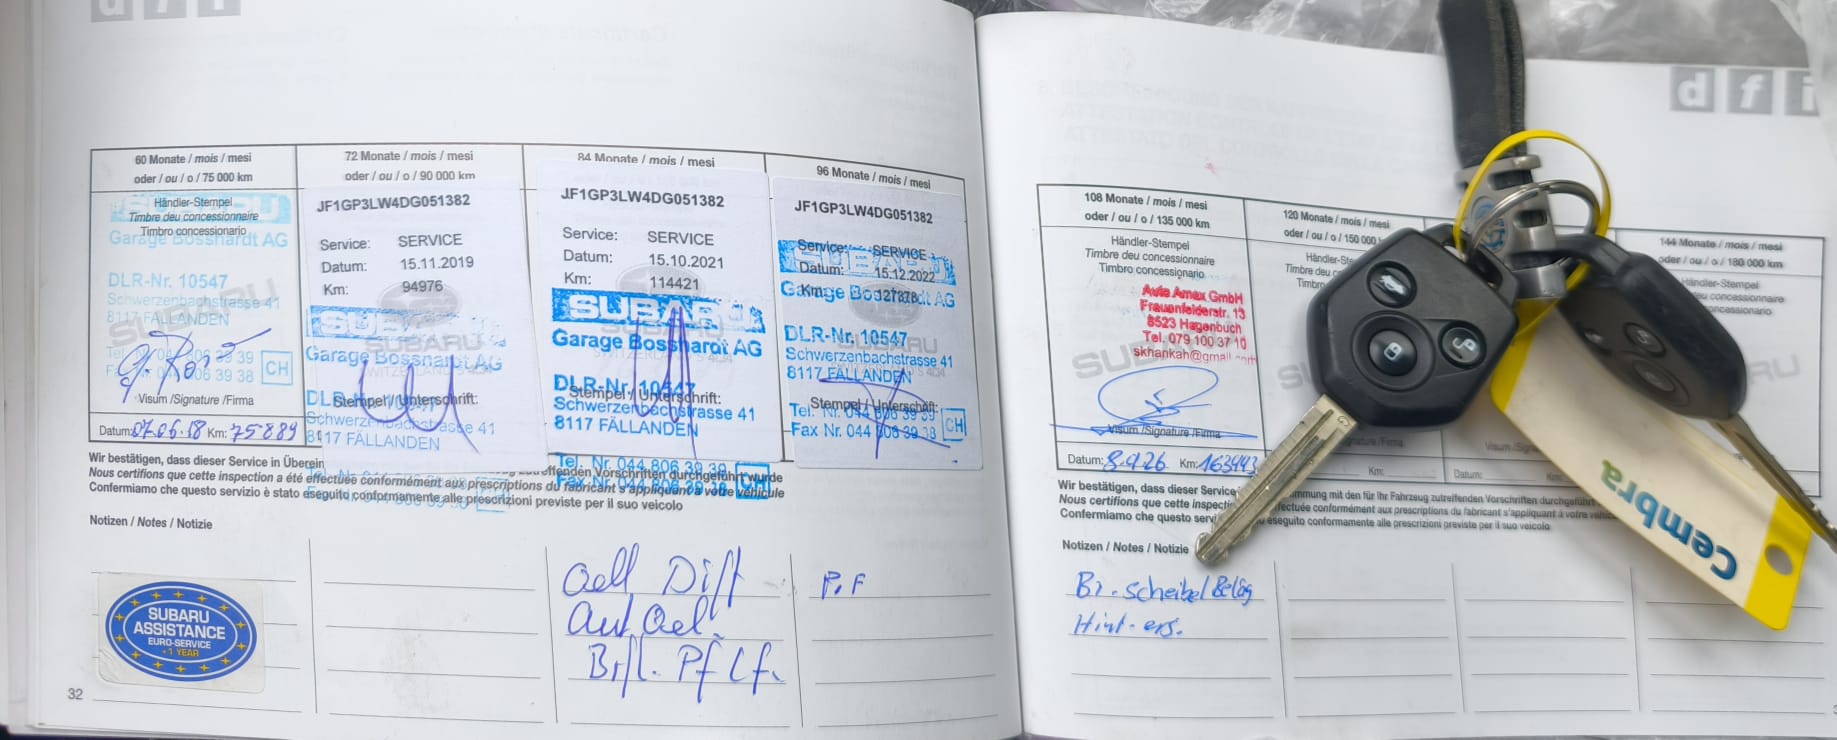 d f i
60 Monate / mois / mesi
oder / ou / o / 75 000 km
Händler-Stempel
Timbre deu concessionnaire
Timbro concessionario
SUBARU
Garage Bosshardt AG
DLR-Nr. 10547
Schwerzenbachstrasse 41
8117 FÄLLANDEN
Tel. Nr. 044 806 39 39
Fax Nr. 044 806 39 38 CH
Visum /Signature /Firma
Datum: 07.06.18 Km: 75889
72 Monate / mois / mesi
oder / ou / o / 90 000 km
JF1GP3LW4DG051382
Service: SERVICE
Datum: 15.11.2019
Km: 94976
SUBARU
Garage Bosshardt AG
Stempel / Unterschrift:
Schwerzenbachstrasse 41
8117 FÄLLANDEN
84 Monate / mois / mesi
JF1GP3LW4DG051382
Service: SERVICE
Datum: 15.10.2021
Km: 114421
SUBARU
Garage Bosshardt AG
DLR-Nr. 10547
Stempel / Unterschrift:
Schwerzenbachstrasse 41
8117 FÄLLANDEN
Tel. Nr. 044 806 39 39
Fax Nr. 044 806 39 38 CH
96 Monate / mois / mesi
JF1GP3LW4DG051382
Service: SERVICE
Datum: 15.12.2022
Km: 127878
Garage Bosshardt AG
DLR-Nr. 10547
Schwerzenbachstrasse 41
8117 FÄLLANDEN
Stempel / Unterschrift:
Tel. Nr. 044 806 39 39
Fax Nr. 044 806 39 38 CH
Wir bestätigen, dass dieser Service in Überein
effenden Vorschriften durchgeführt wurde
Nous certifions que cette inspection a été effectuée conformément aux prescriptions du fabricant s'appliquant à votre véhicule
Confermiamo che questo servizio è stato eseguito conformamente alle prescrizioni previste per il suo veicolo
Notizen / Notes / Notizie
SUBARU
ASSISTANCE
EURO-SERVICE
+1 YEAR
Oell Diff
Aut Oel.
Brfl. Pf Lf.
P.F
32
d f i
108 Monate / mois / mesi
oder / ou / o / 135 000 km
Händler-Stempel
Timbre deu concessionnaire
Timbro concessionario
Auto Amax GmbH
Frauenfelderstr. 13
8523 Hagenbuch
Tel. 079 100 37 10
skhankah@gmail
Visum /Signature /Firma
Datum: 8.4.26 Km: 163443
120 Monate / mois / mesi
oder / ou / o / 150 000
144 Monate / mois / mesi
oder / ou / o / 180 000 km
Händler-Stempel
deu concessionnaire
concessionario
Km:
Datum:
Wir bestätigen, dass dieser Service
mmung mit den für Ihr Fahrzeug zutreffenden Vorschriften durchgeführt
Nous certifions que cette inspecti
fectuée conformément aux prescriptions du fabricant s'appliquant à votre
Confermiamo che questo servi
eseguito conformamente alle prescrizioni previste per il suo veicolo
Notizen / Notes / Notizie
Br. Scheibe/Beläg
Hint. ers.
Cembra